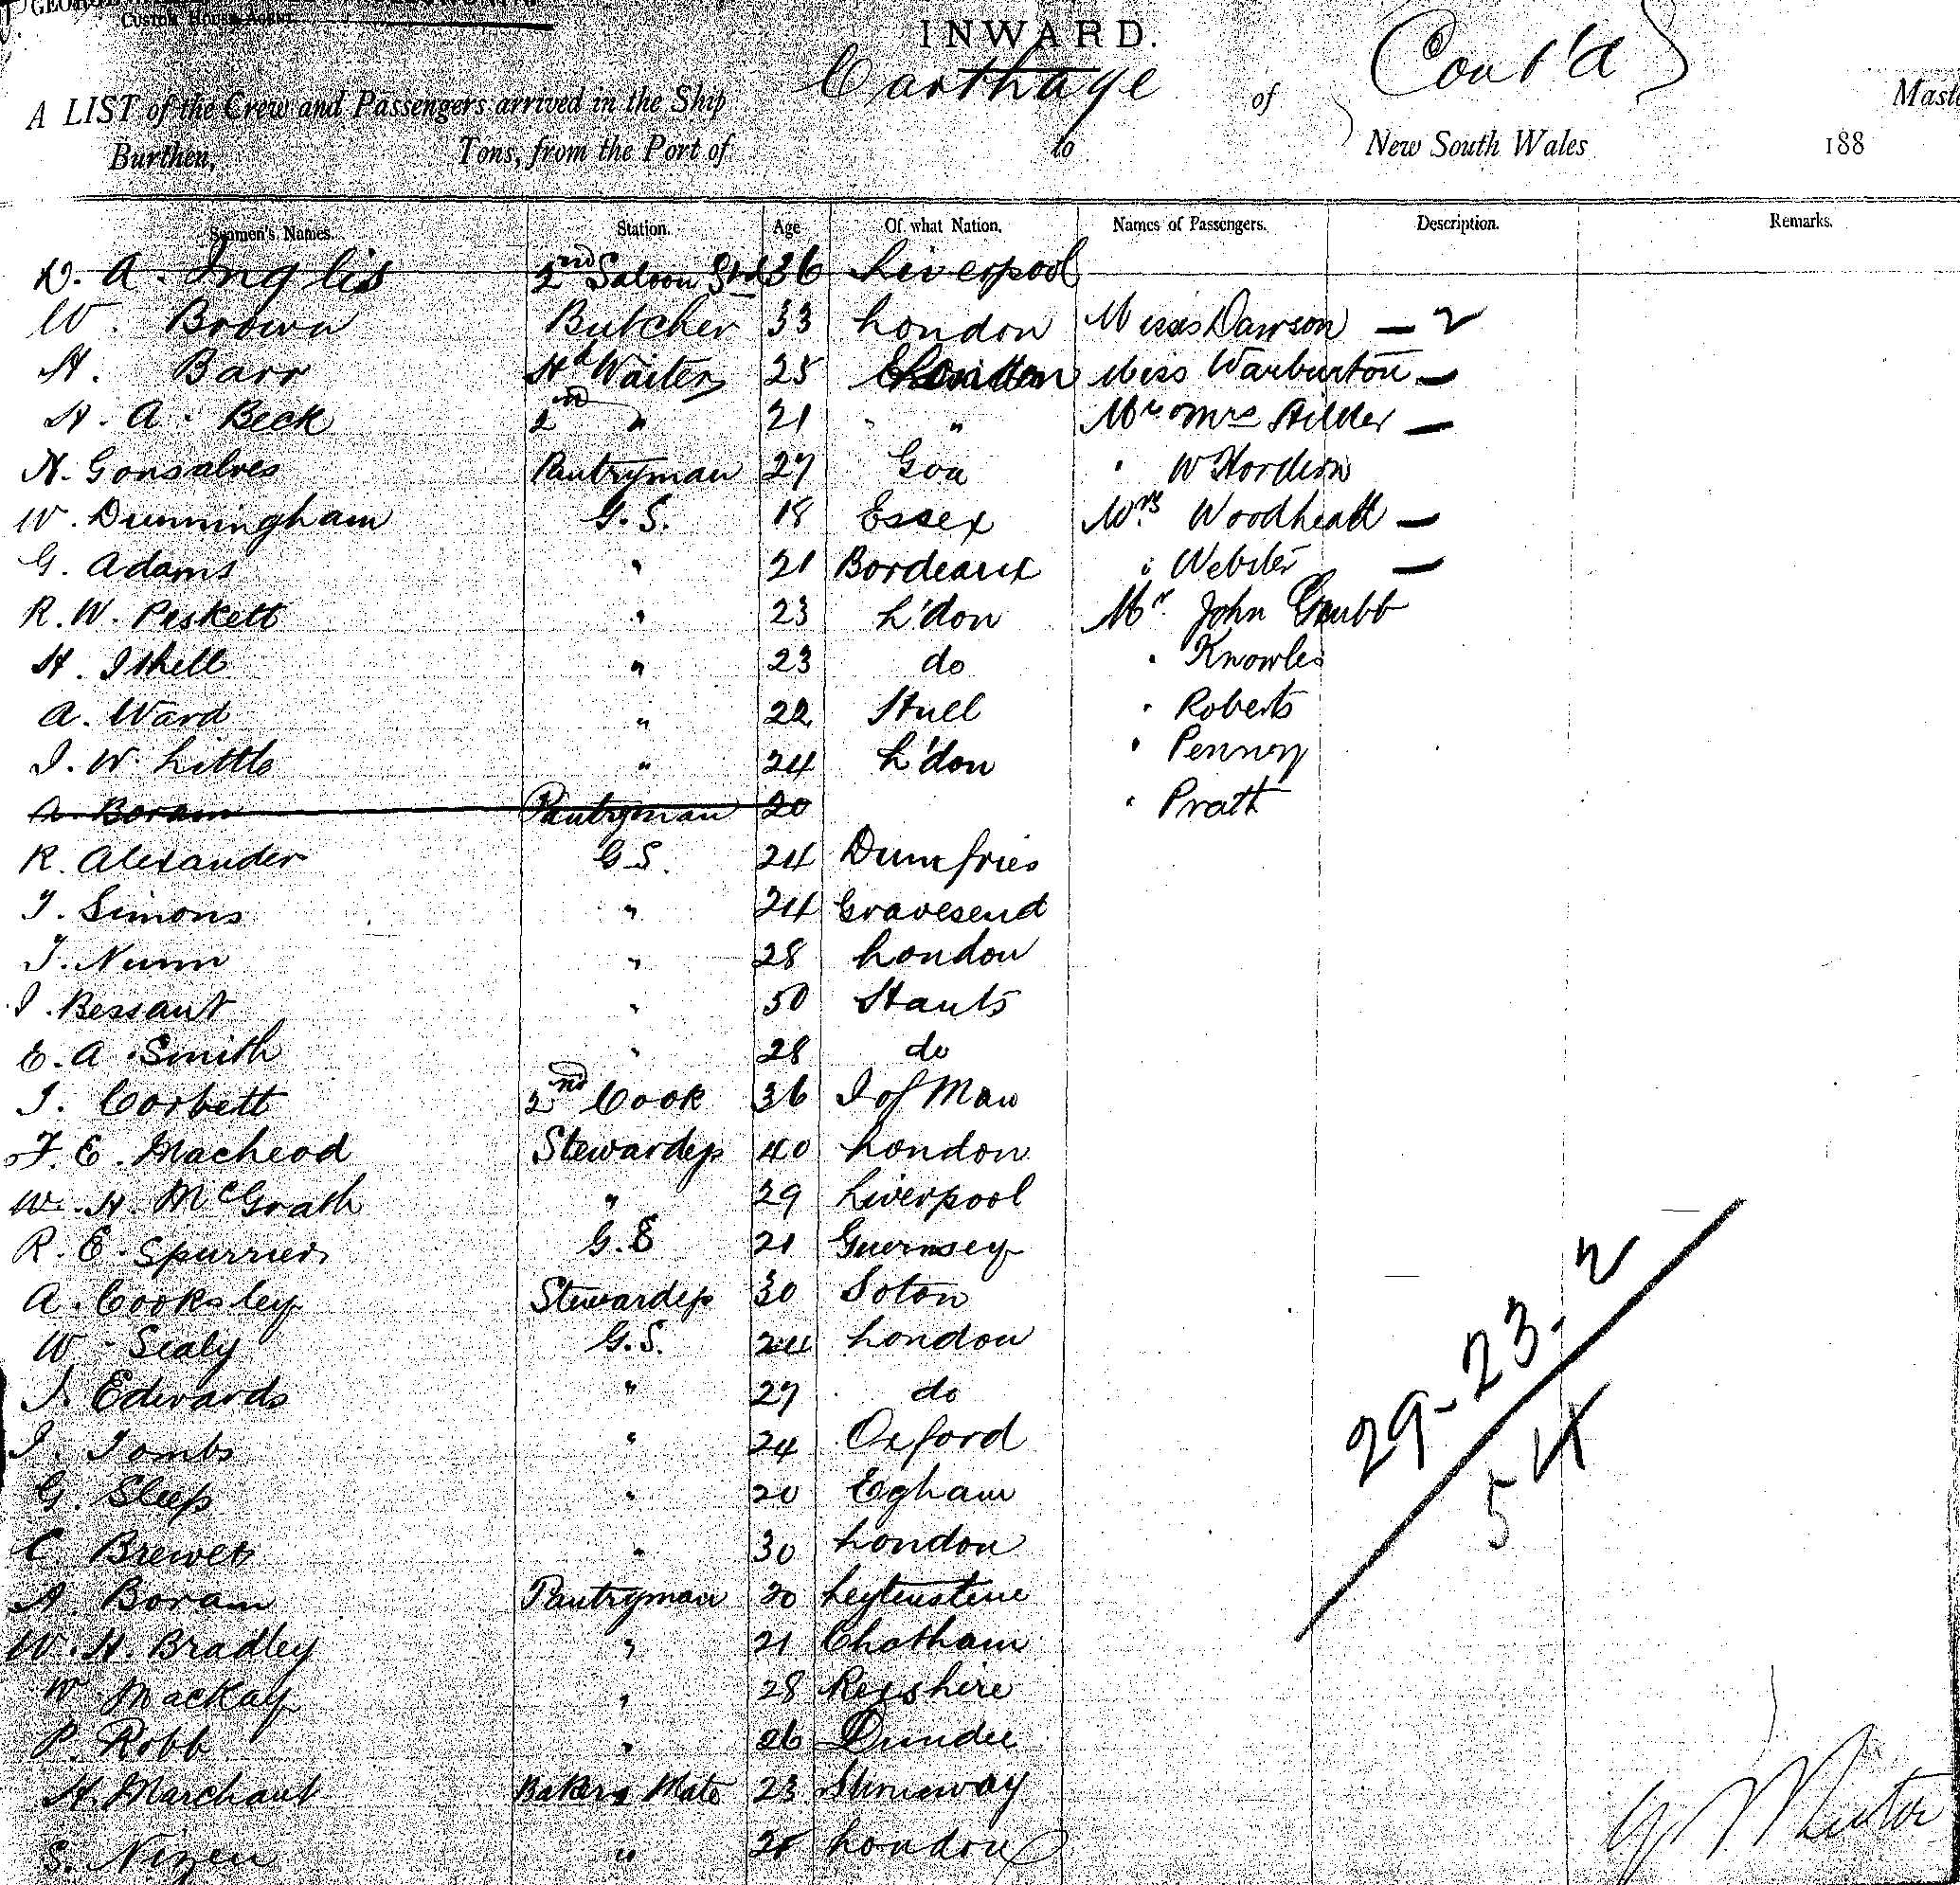 CUSTOM HOUSE AGENT
INWARD.
A LIST of the Crew and Passengers arrived in the Ship Carthage of (Cont'd) Master
Burthen, Tons, from the Port of to New South Wales 188
Seamen's Names. Station. Age Of what Nation. Names of Passengers. Description. Remarks.
D. A. Inglis 2nd Saloon Std 36 Liverpool
W. Brown Butcher 33 London Misses Dawson — 2
H. Barr Hd Waiter 25 London Miss Warburton —
H. A. Beck 2nd " 21 " " Mr & Mrs Hilder —
N. Gonsalves Pantryman 27 Goa " W Hordern
W. Dunningham G.S. 18 Essex Mrs Woodhead —
G. Adams " 21 Bordeaux " Webster —
R. W. Peskett " 23 L'don Mr. John Grubb
H. Ithell " 23 do " Knowles
A. Ward " 22 Hull " Roberts
J. W. Little " 24 L'don " Penney
A. Boram Pantryman 20 " Pratt
R. Alexander G.S. 24 Dumfries
T. Simons " 24 Gravesend
T. Nunn " 28 London
J. Bessant " 50 Hants
E. A. Smith " 28 do
J. Corbett 2nd Cook 36 I of Man
F. E. Macleod Stewardess 40 London
W. H. McGrath " 29 Liverpool
R. E. Spurrier G.S 21 Guernsey
A. Cooksley Stewardess 30 Soton
W. Sealy G.S. 24 London
J. Edwards " 27 do
J. Tombs " 24 Oxford
G. Sleep " 20 Egham
C. Brewer " 30 London
A. Boram Pantryman 20 Leytenstine
W. H. Bradley " 21 Chatham
W. Mackay " 28 Rosshire
P. Robb " 26 Dundee
H. Marchant Bakers Mate 23
S. Nizen " 25 London
29-23-2
54